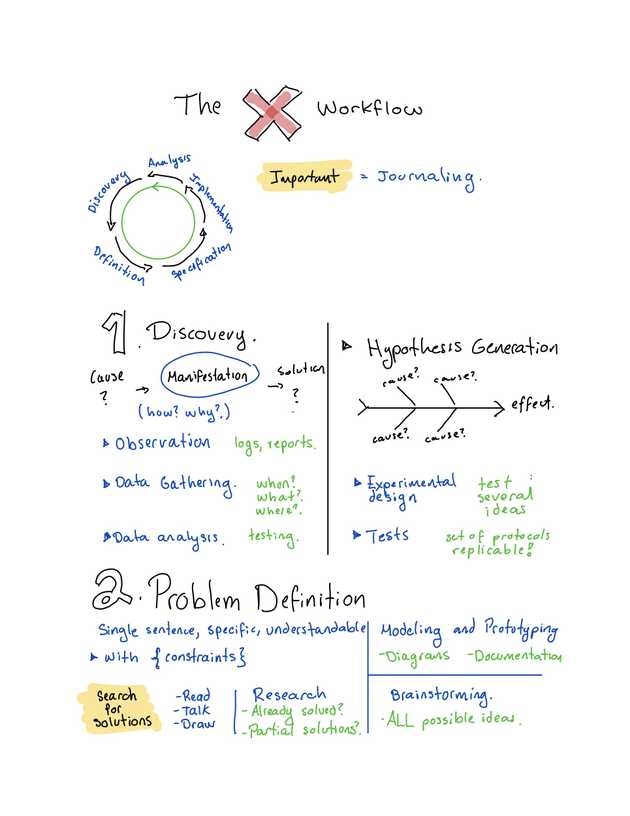 The X Workflow
Analysis
Discovery
Implementation
Definition
Specification
Important = Journaling.
1. Discovery.
Cause
?
Manifestation
Solution
?
(how? why?)
Observation logs, reports.
Data Gathering. when?
what?
where?
Data analysis. testing.
Hypothesis Generation
cause? cause?
effect.
cause? cause?
Experimental
design
test :
several
ideas
Tests
set of protocols
replicable!
2. Problem Definition
Single sentence, specific, understandable
with {constraints}
Modeling and Prototyping
-Diagrams -Documentation
Search
for
solutions
-Read
-Talk
-Draw
Research
-Already solved?
-Partial solutions?
Brainstorming.
-ALL possible ideas.